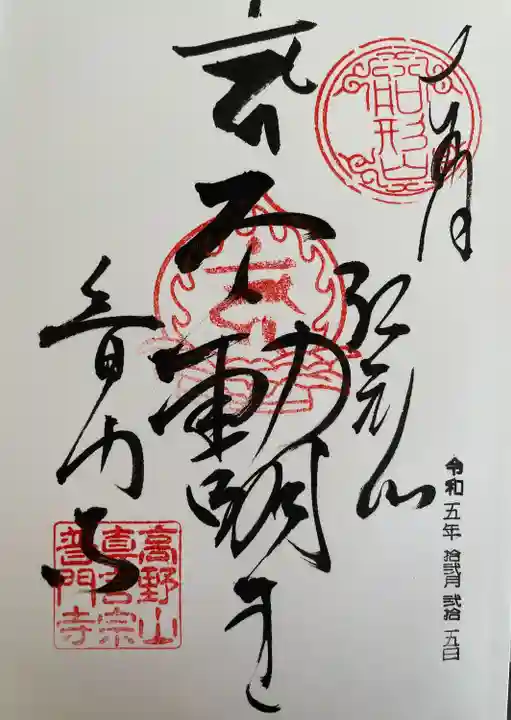 船形山
不動明王
普門寺
高野山
真言宗
普門寺
令和五年 拾弐月 弐拾五日